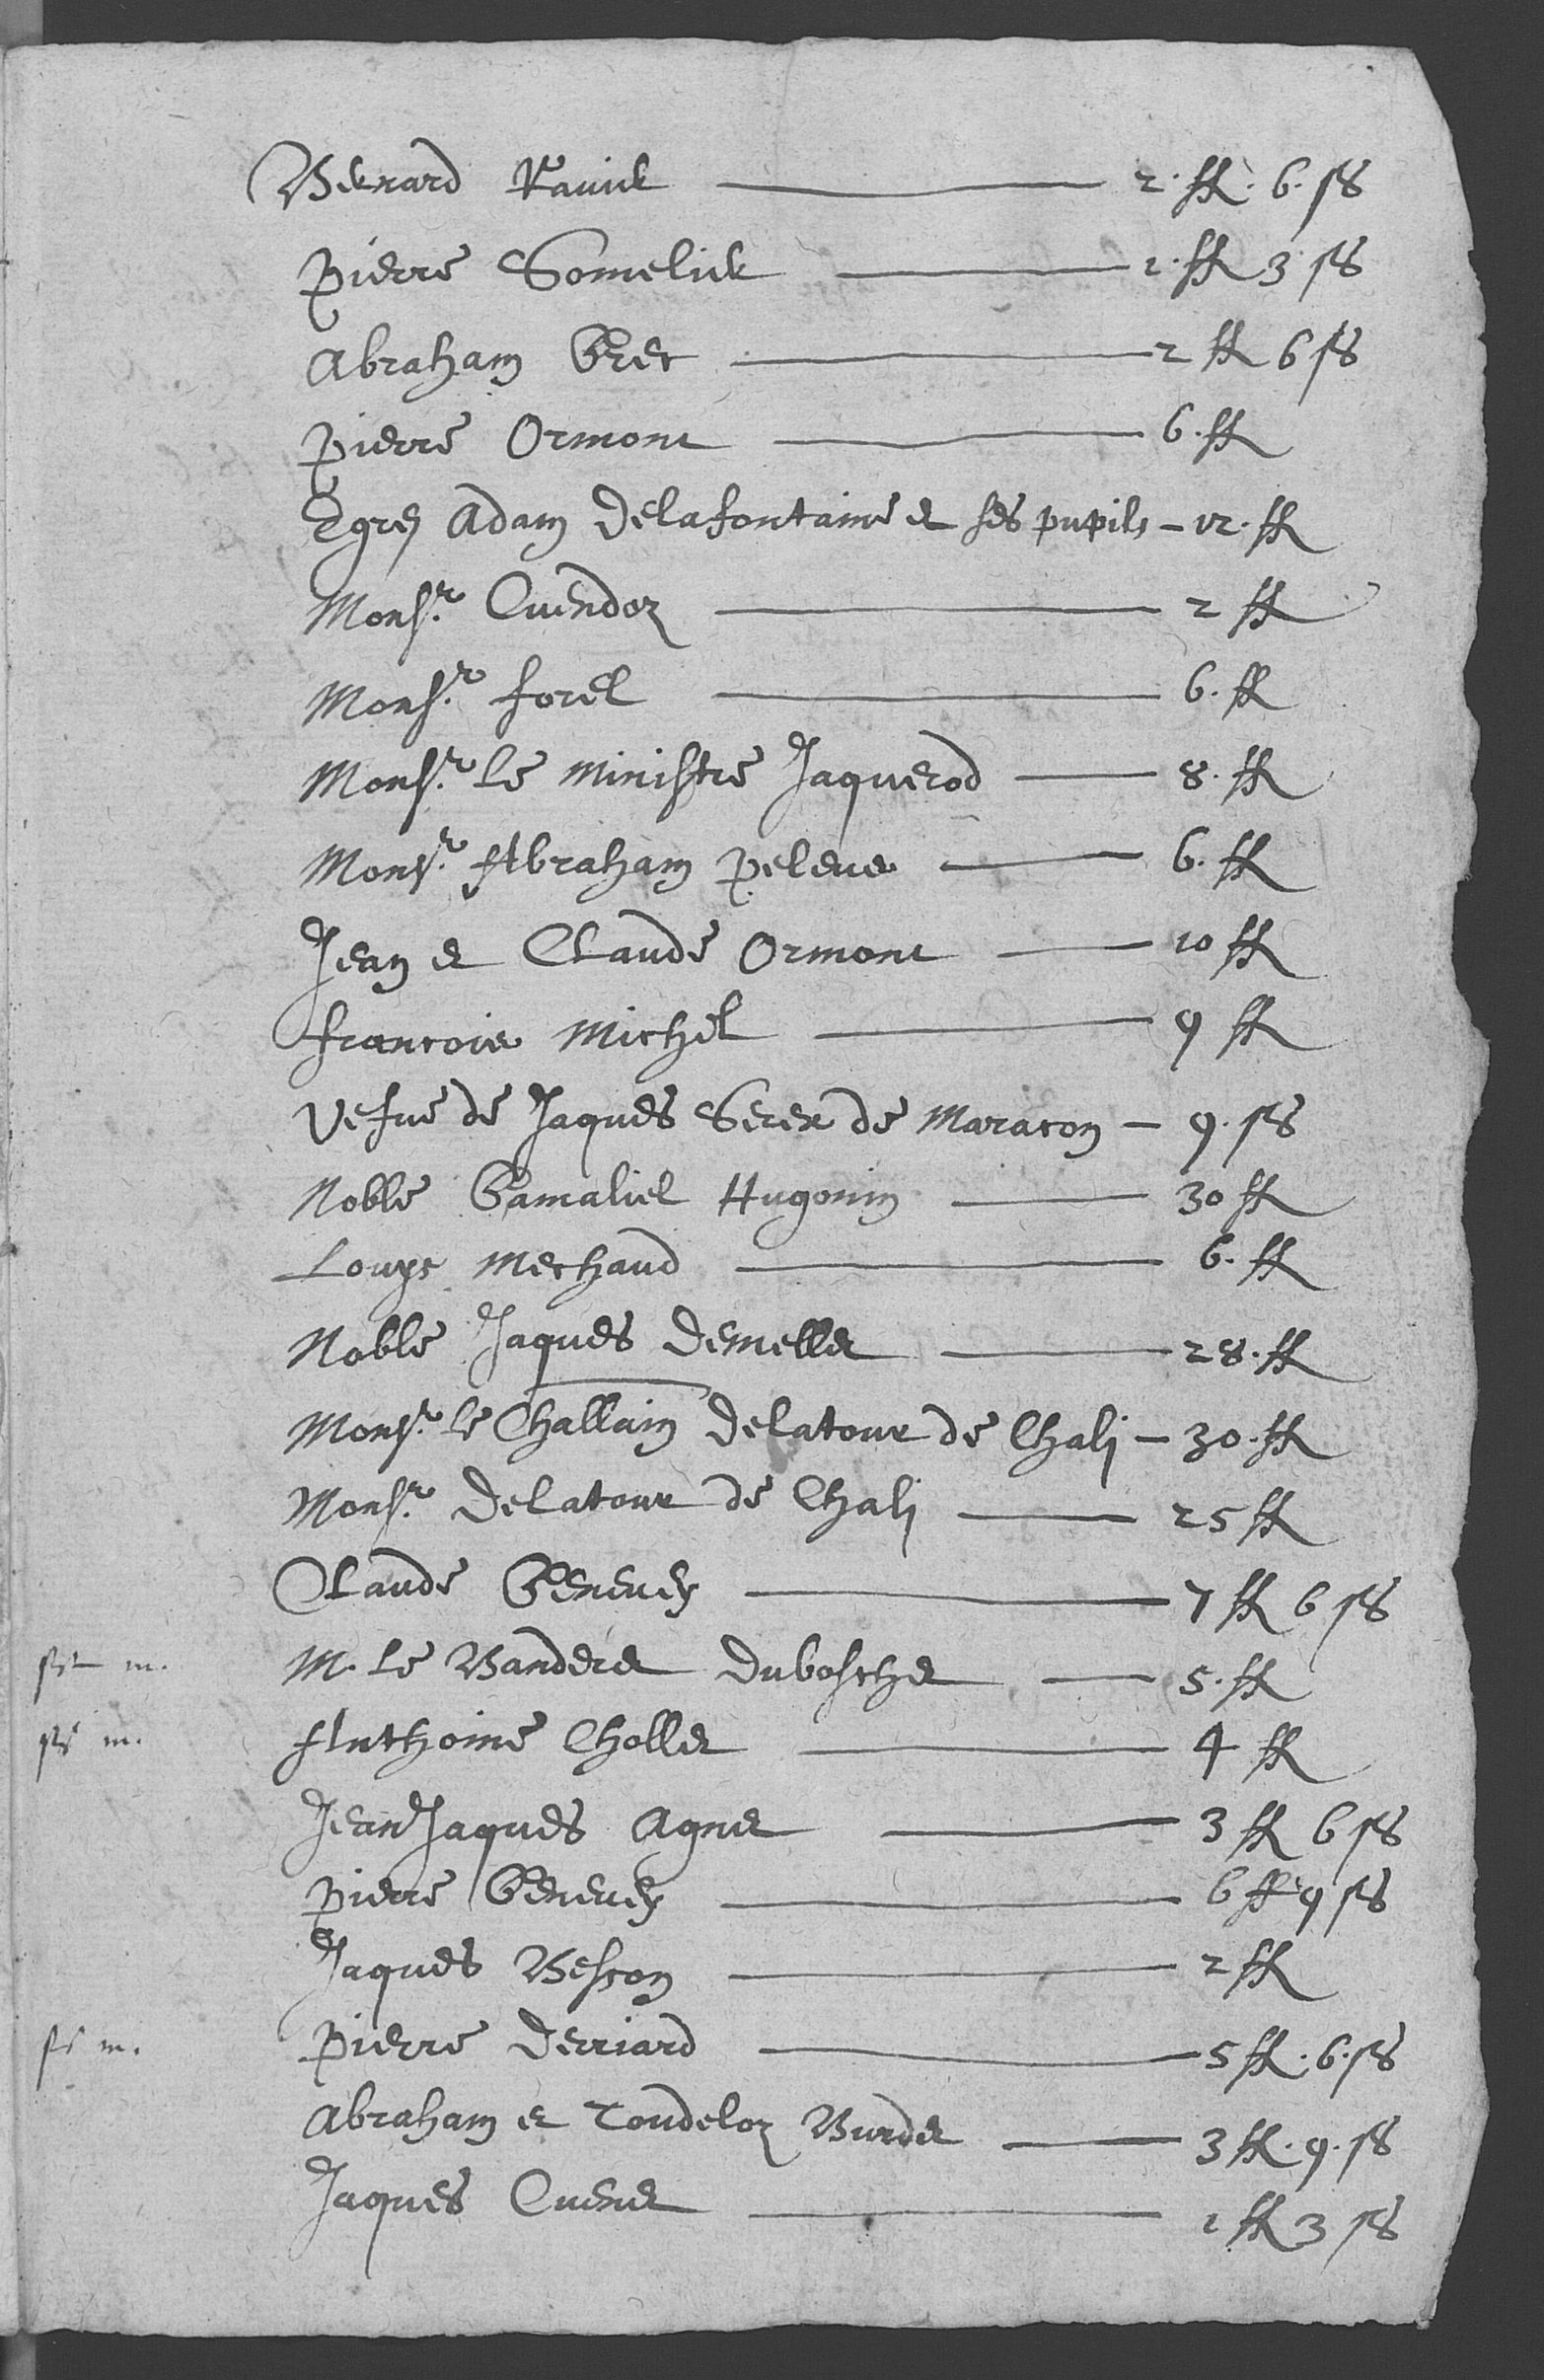 Bernard Ravier — 2. ff. 6. ss
Pierre Somelier — 1. ff 3 ss
Abraham Grec — 2 ff 6 ss
Pierre Ormont — 6. ff
Egre Adam Delafontaine et ses pupils — 12. ff
Monsr. Cuendoz — 2 ff
Monsr. forel — 6. ff
Monsr. le Ministre Jaquerod — 8. ff
Monsr. Abraham Peleus — 6. ff
Jean et Claude Ormont — 10 ff
francois Michel — 9 ff
Vefue de Jaques Serex de Maracon — 9. ss
Noble Gamaliel Hugonin — 30 ff
Louys Mechaud — 6. ff
Noble Jaques Demellet — 28. ff
Monsr. le Challain Delatour de Chali — 30. ff
Monsr. Delatour de Chali — 25 ff
Claude Genevey — 7 ff 6 ss
M. le Banderet Duboschet — 5. ff
Anthoine Chollet — 4 ff
Jean Jaques Agnet — 3 ff 6 ss
Pierre Genevey — 6 ff 9 ss
Jaques Besson — 2 ff
Pierre Derriard — 5 ff. 6. ss
Abraham et Toudeloz Burdet — 3 ff. 9. ss
Jaques Cuenet — 1 ff 3 ss